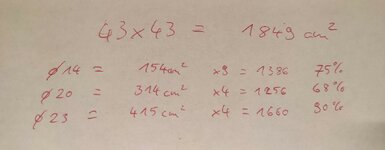 43x43 = 1849 cm²
ø14 = 154cm² x9 = 1386 75%
ø20 = 314cm² x4 = 1256 68%
ø23 = 415cm² x4 = 1660 90%